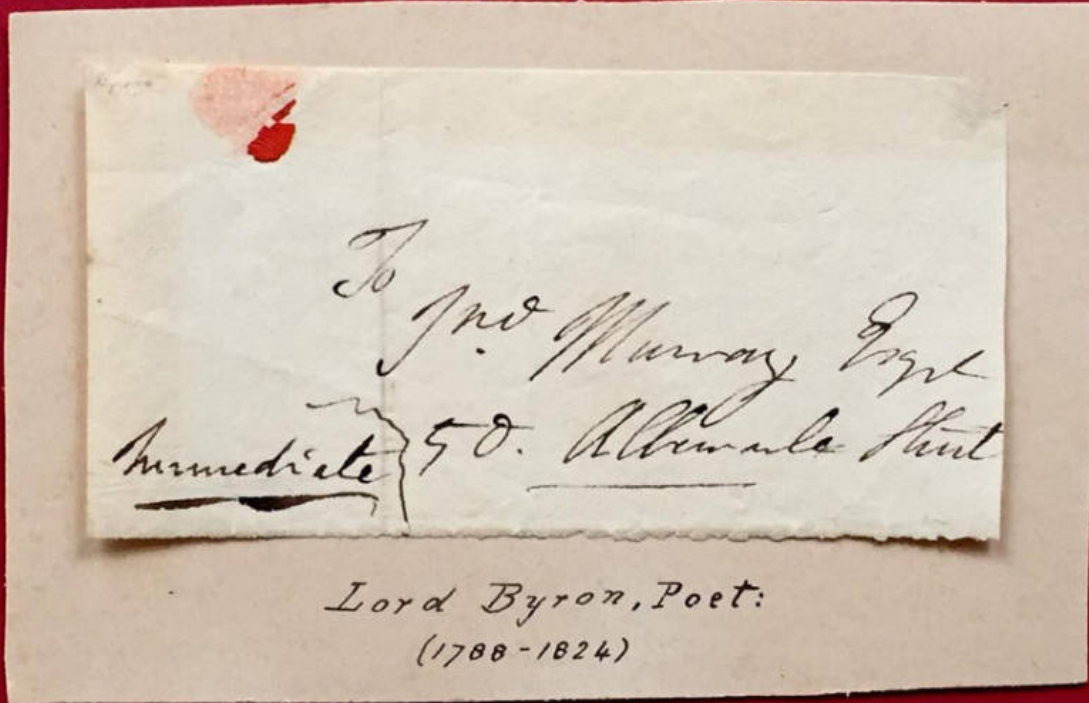 To
Jno Murray Esqre
Immediate 50. Albemarle Street
Lord Byron, Poet:
(1788-1824)